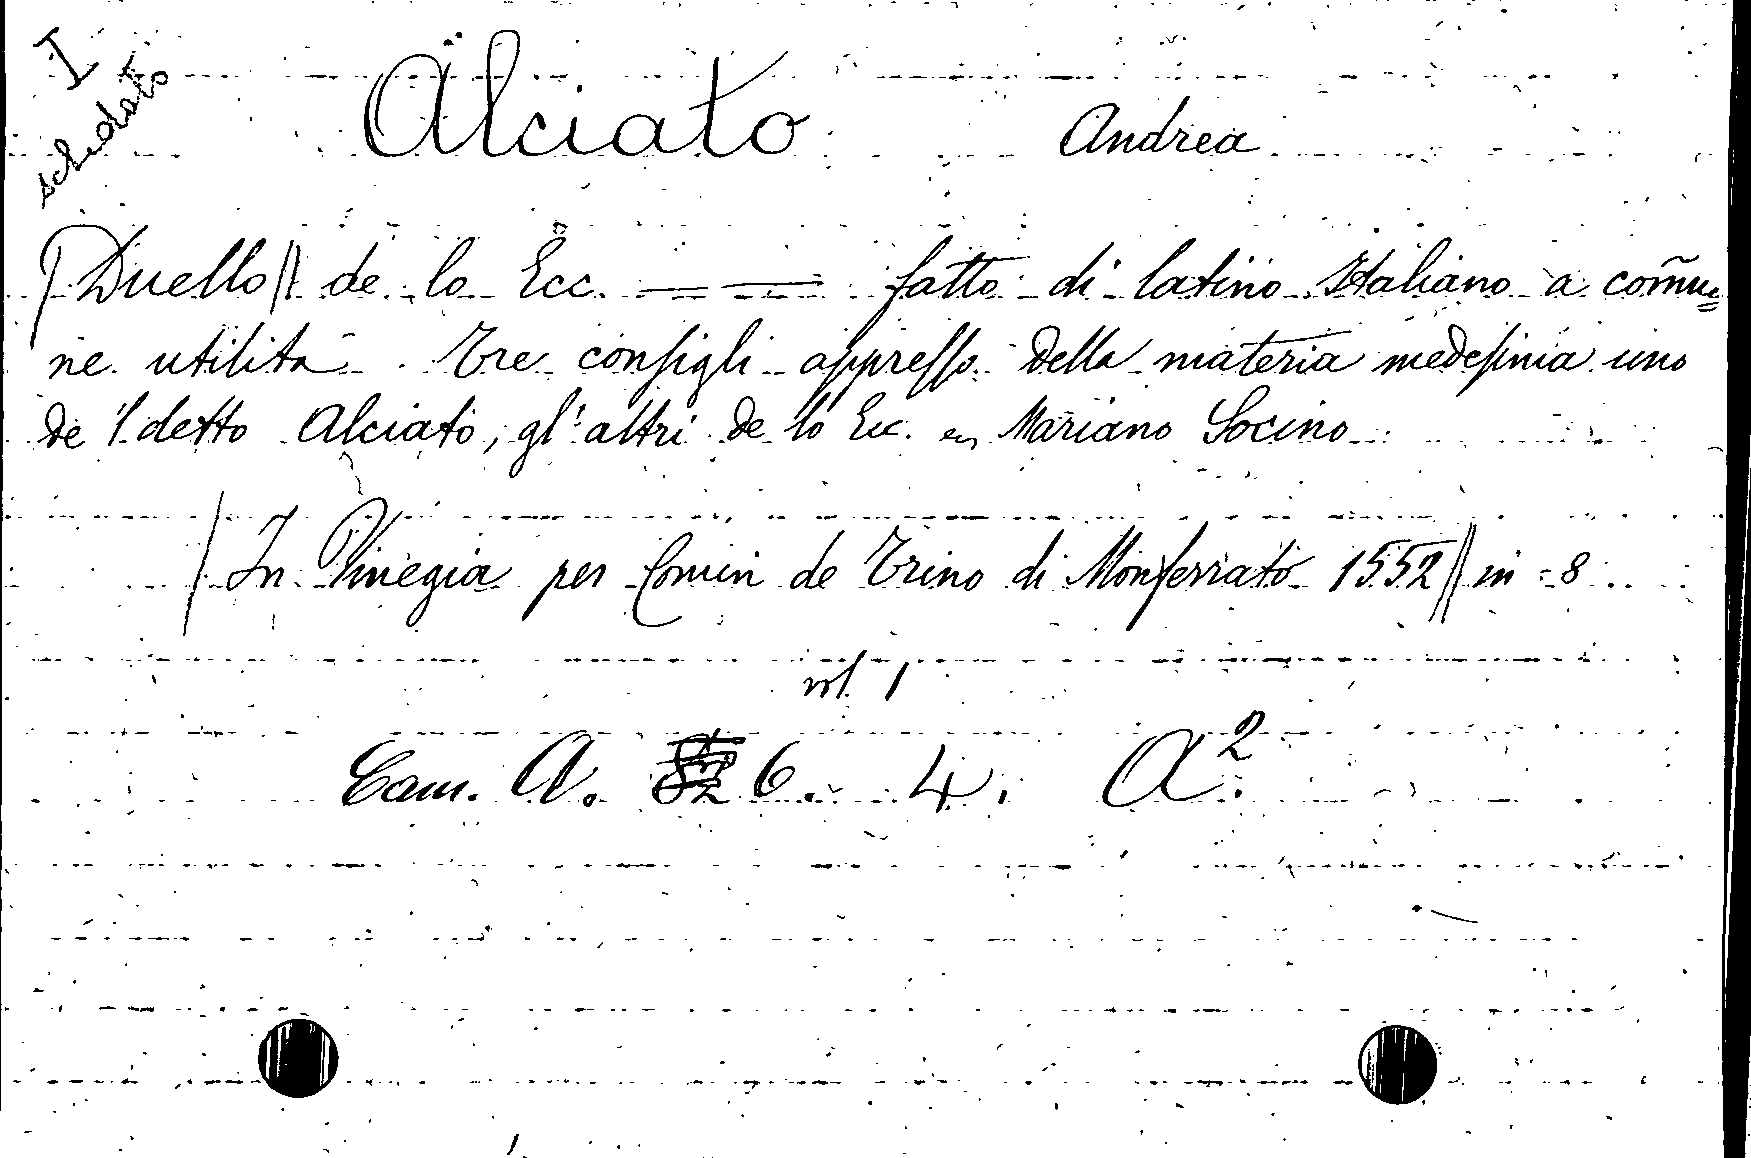 I
schedato
Alciato Andrea
Duello de lo Ecc. — — fatto di latino Italiano a com̃u=
ne utilita. Tre consigli appresso della materia medesima uno
de 'l detto Alciato, gl' altri de lo Ecc. Mariano Socino
In Vinegia per Comin de Trino di Monferrato 1552 in -8
vol. 1
Cam. A. 6. 4. A².